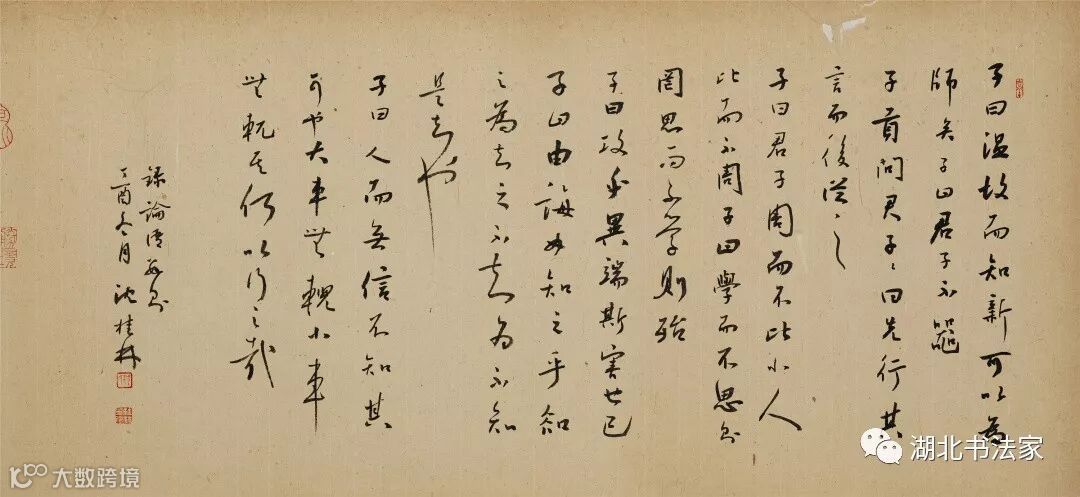 子曰温故而知新可以為
師矣子曰君子不器
子貢問君子〻曰先行其
言而後從〻之
子曰君子周而不比小人
比而不周子曰學而不思則
罔思而不学則殆
子曰攻乎異端斯害也已
子曰由誨女知之乎知
之為知之不知為不知
是知也
子曰人而無信不知其
可也大車無輗小車
無軏其何以行之哉
錄論語數則
丁酉冬月沈桂林
湖北书法家
大数跨境